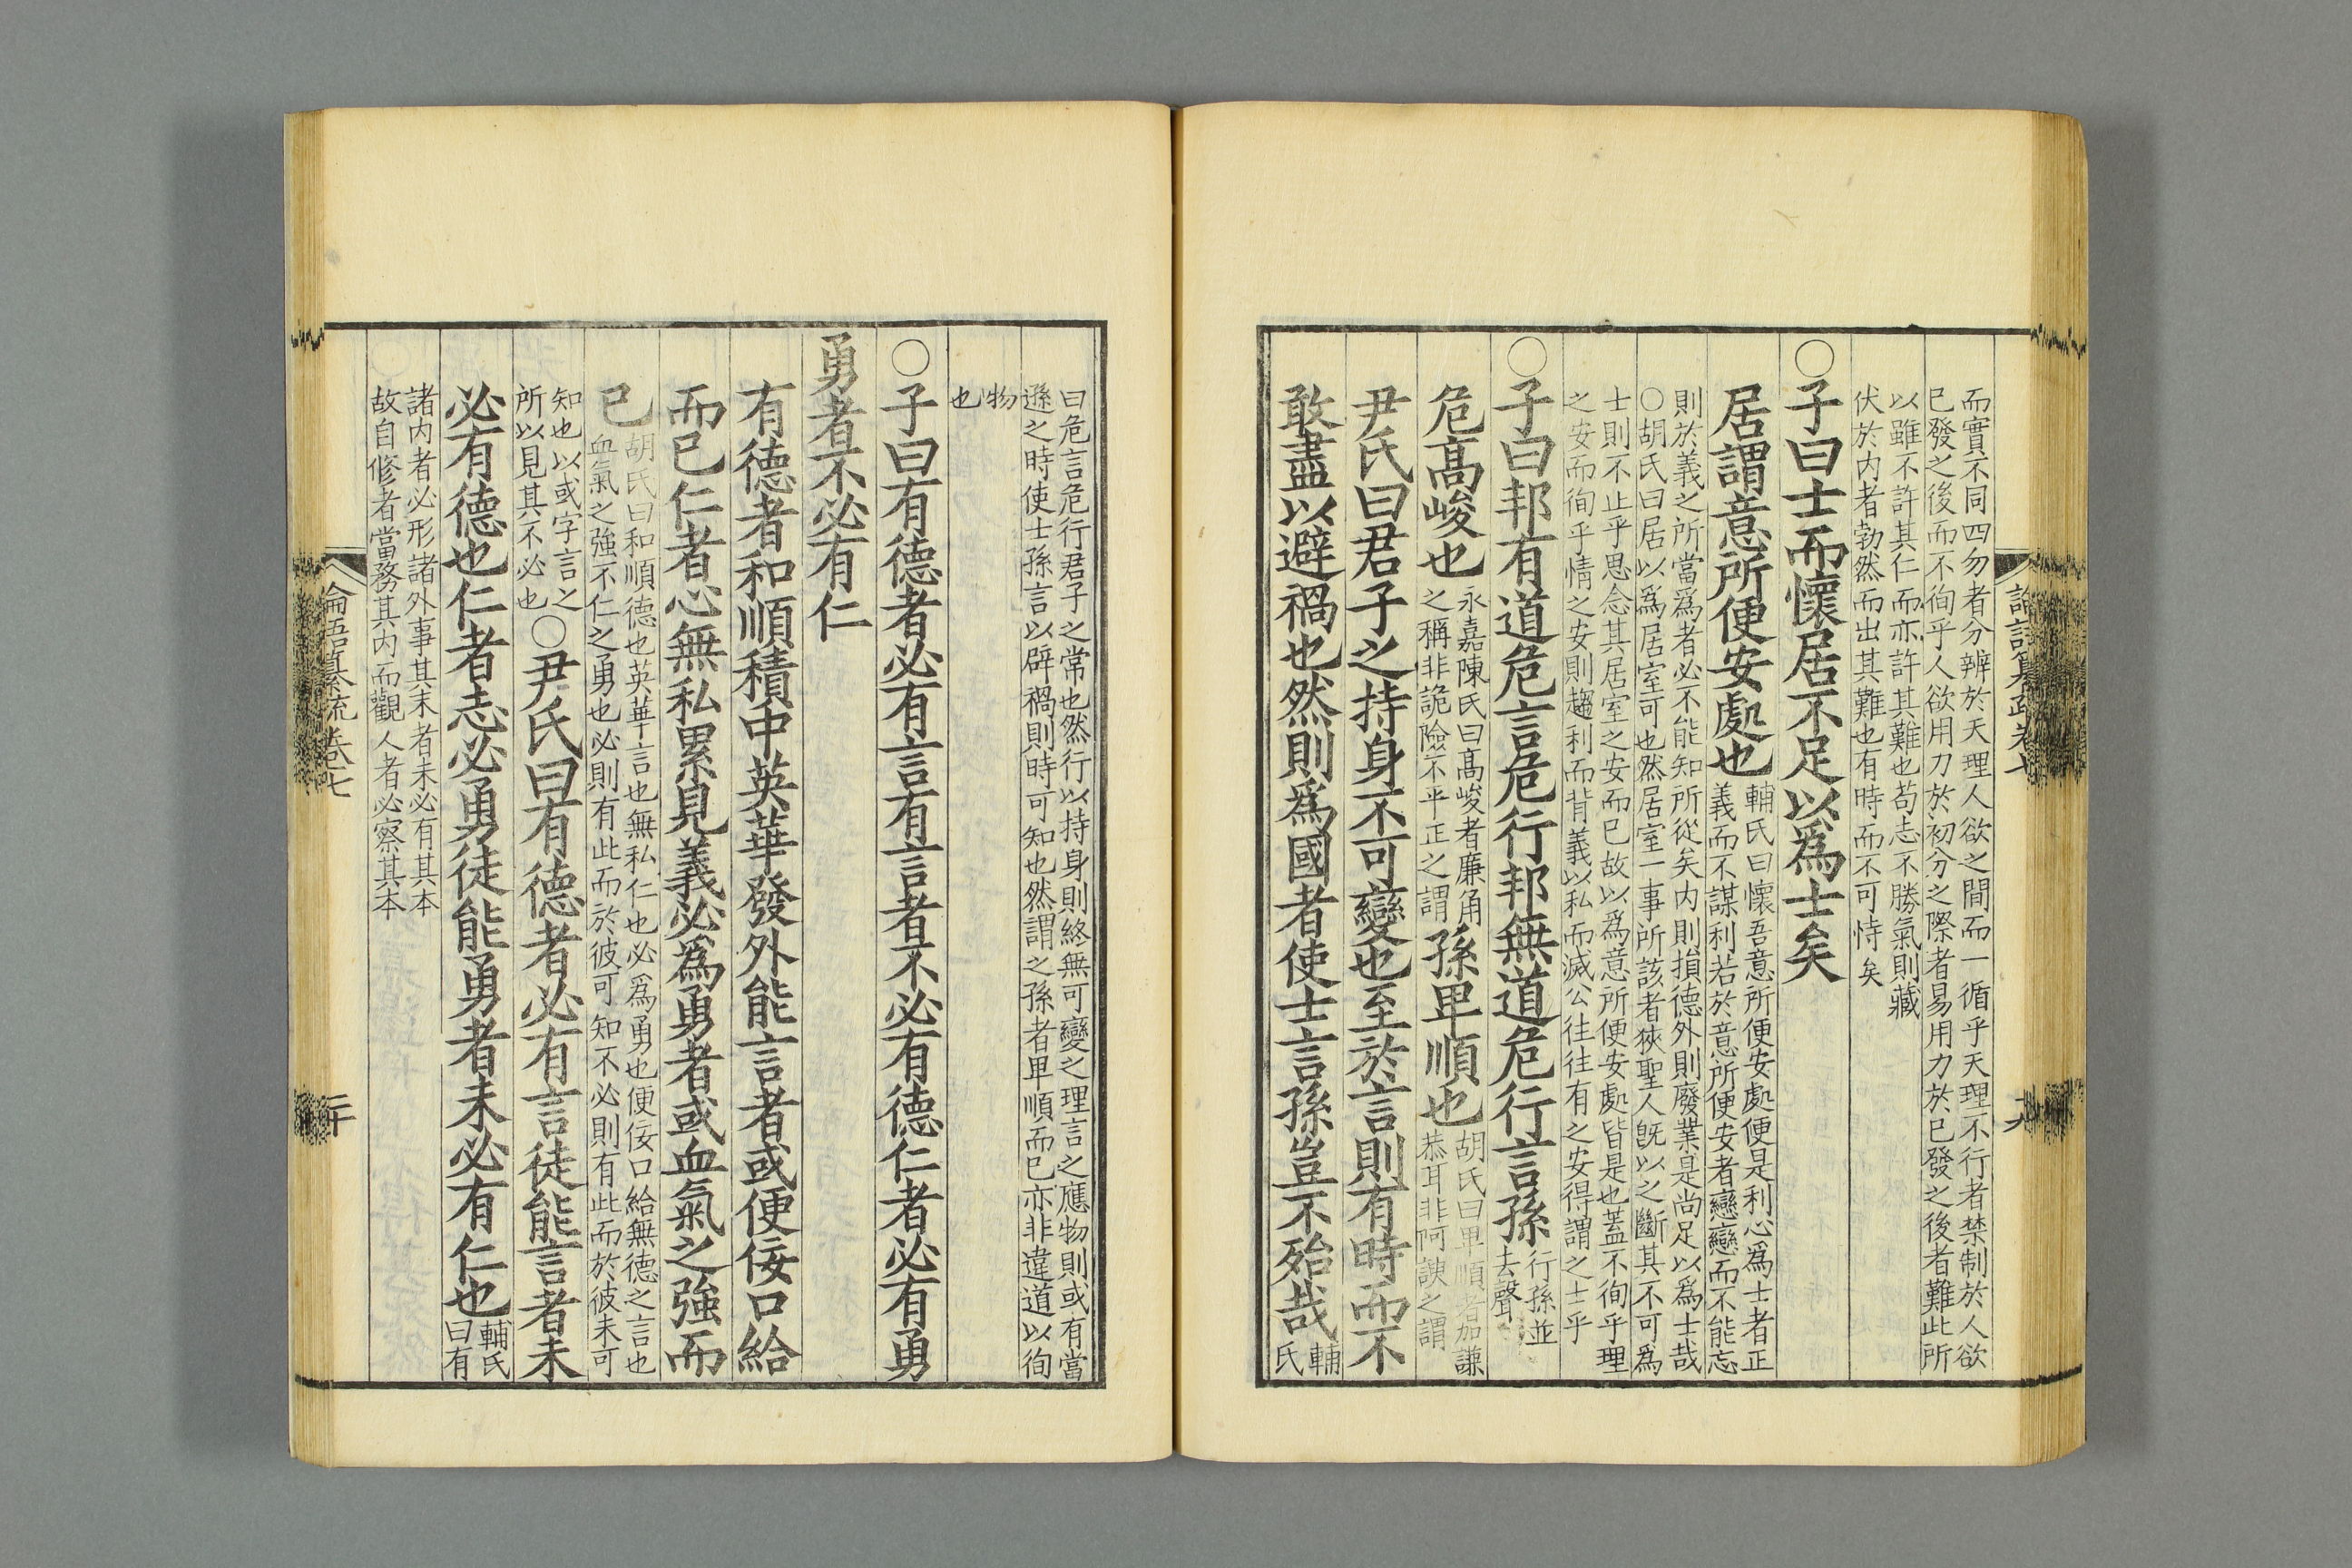 論語纂疏卷七
十九
而實不同四勿者分辨於天理人欲之間而一循乎天理不行者禁制於人欲
已發之後而不徇乎人欲用力於初分之際者易用力於已發之後者難此所
以雖不許其仁而亦許其難也苟志不勝氣則藏
伏於内者勃然而出其難也有時而不可恃矣
〇子曰士而懷居不足以爲士矣
居謂意所便安處也
輔氏曰懷吾意所便安處便是利心爲士者正
義而不謀利若於意所便安者戀戀而不能忘
則於義之所當爲者必不能知所從矣内則損德外則廢業是尚足以爲士哉
〇胡氏曰居以爲居室可也然居室一事所該者狹聖人旣以之斷其不可爲
士則不止乎思念其居室之安而已故以爲意所便安處皆是也蓋不徇乎理
之安而徇乎情之安則趨利而背義以私而滅公往往有之安得謂之士乎
〇子曰邦有道危言危行邦無道危行言孫
行孫並
去聲
危高峻也
永嘉陳氏曰高峻者廉角
之稱非詭險不平正之謂
孫卑順也
胡氏曰卑順者加謙
恭耳非阿諛之謂
尹氏曰君子之持身不可變也至於言則有時而不
敢盡以避禍也然則爲國者使士言孫豈不殆哉
輔
氏
曰危言危行君子之常也然行以持身則終無可變之理言之應物則或有當
遜之時使士孫言以辟禍則時可知也然謂之孫者卑順而已亦非違道以徇
物
也
〇子曰有德者必有言有言者不必有德仁者必有勇
勇者不必有仁
有德者和順積中英華發外能言者或便佞口給
而已仁者心無私累見義必爲勇者或血氣之強而
已
胡氏曰和順德也英華言也無私仁也必爲勇也便佞口給無德之言也
血氣之強不仁之勇也必則有此而於彼可知不必則有此而於彼未可
知也以或字言之
所以見其不必也
〇尹氏曰有德者必有言徒能言者未
必有德也仁者志必勇徒能勇者未必有仁也
輔氏
曰有
諸内者必形諸外事其末者未必有其本
故自修者當務其内而觀人者必察其本
論語纂疏卷七
二十